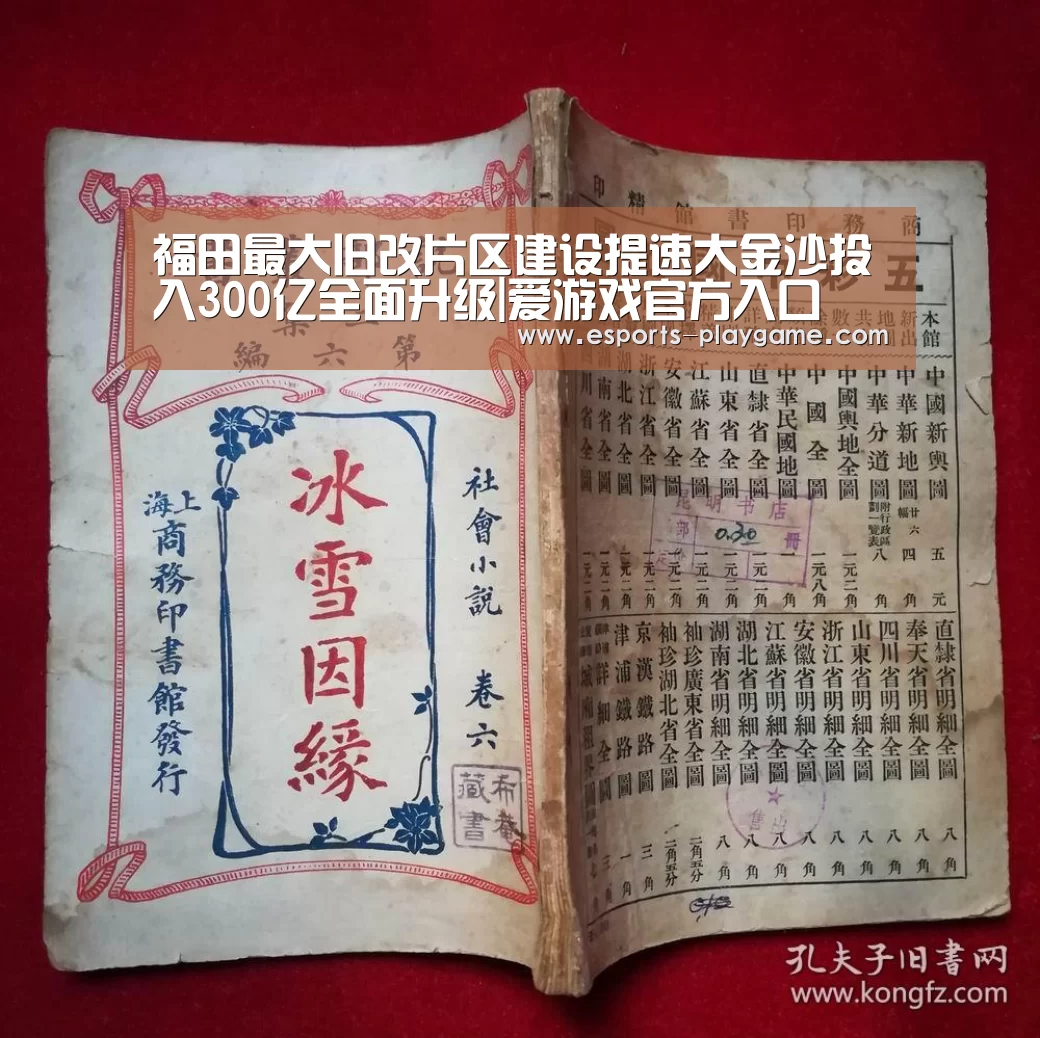 福田最大旧改片区建设提速大金沙投
入300亿全面升级|爱游戏官方入口
www.esports-playgame.com
第六編
社會小説 卷六
冰雪因緣
上海商務印書館發行
希菴藏書
商務印書館精印
五彩
本館新出
中國新輿圖 五元
中華新地圖 廿六幅 四角
中華分道圖 附行政區劃一覽表 八角
中國輿地全圖 一元二角
中國全圖 一元八角
中華民國地圖
直隸省全圖 一元二角
山東省全圖 一元二角
江蘇省全圖 一元二角
安徽省全圖 一元二角
浙江省全圖 一元二角
湖北省全圖 一元二角
湖南省全圖 一元二角
川省全圖 一元二角
昆明书店
0.30
册
直隸省明細全圖 八角
奉天省明細全圖 八角
四川省明細全圖 八角
山東省明細全圖 八角
浙江省明細全圖 八角
安徽省明細全圖 八角
江蘇省明細全圖 八角
湖北省明細全圖 八角
湖南省明細全圖 八角
袖珍廣東省全圖 二角五分
袖珍湖北省全圖 二角五分
京漢鐵路圖 三角
津浦鐵路圖 一角
詳細全圖 三角
城廂租界圖
售出
孔夫子旧书网
www.kongfz.com